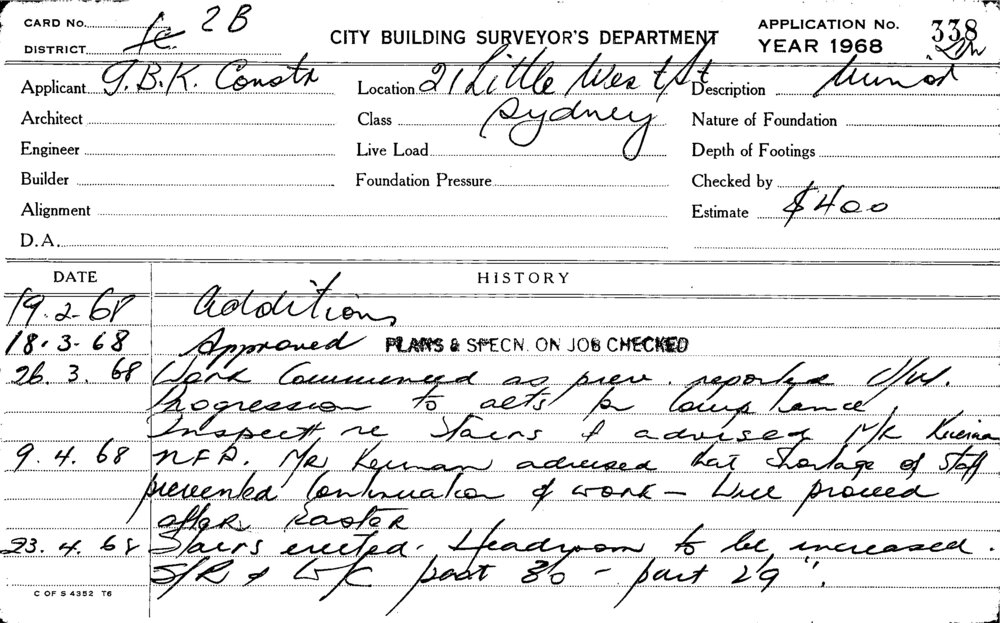 CARD No. 2B
DISTRICT
CITY BUILDING SURVEYOR'S DEPARTMENT
APPLICATION No. 338
YEAR 1968
Applicant G.B.K. Constr
Location 21 Little West St
Description Minor
Architect
Class Sydney
Nature of Foundation
Engineer
Live Load
Depth of Footings
Builder
Foundation Pressure
Checked by
Alignment
Estimate $400
D.A.
DATE HISTORY
19.2.68 Additions
18.3.68 Approved PLANS & SPECN. ON JOB CHECKED
26.3.68 Work Commenced as prev. reported
Progression to for compliance
Inspectn re Stairs & advised Mr Kiernan
9.4.68 N.F.P. Mr Keirnan advised that shortage of staff
prevented Continuation of work — Will proceed
after Easter
23.4.68 Stairs erected. Headroom to be increased.
S/R & W/C part 30 — part 29".
C OF S 4352 T6